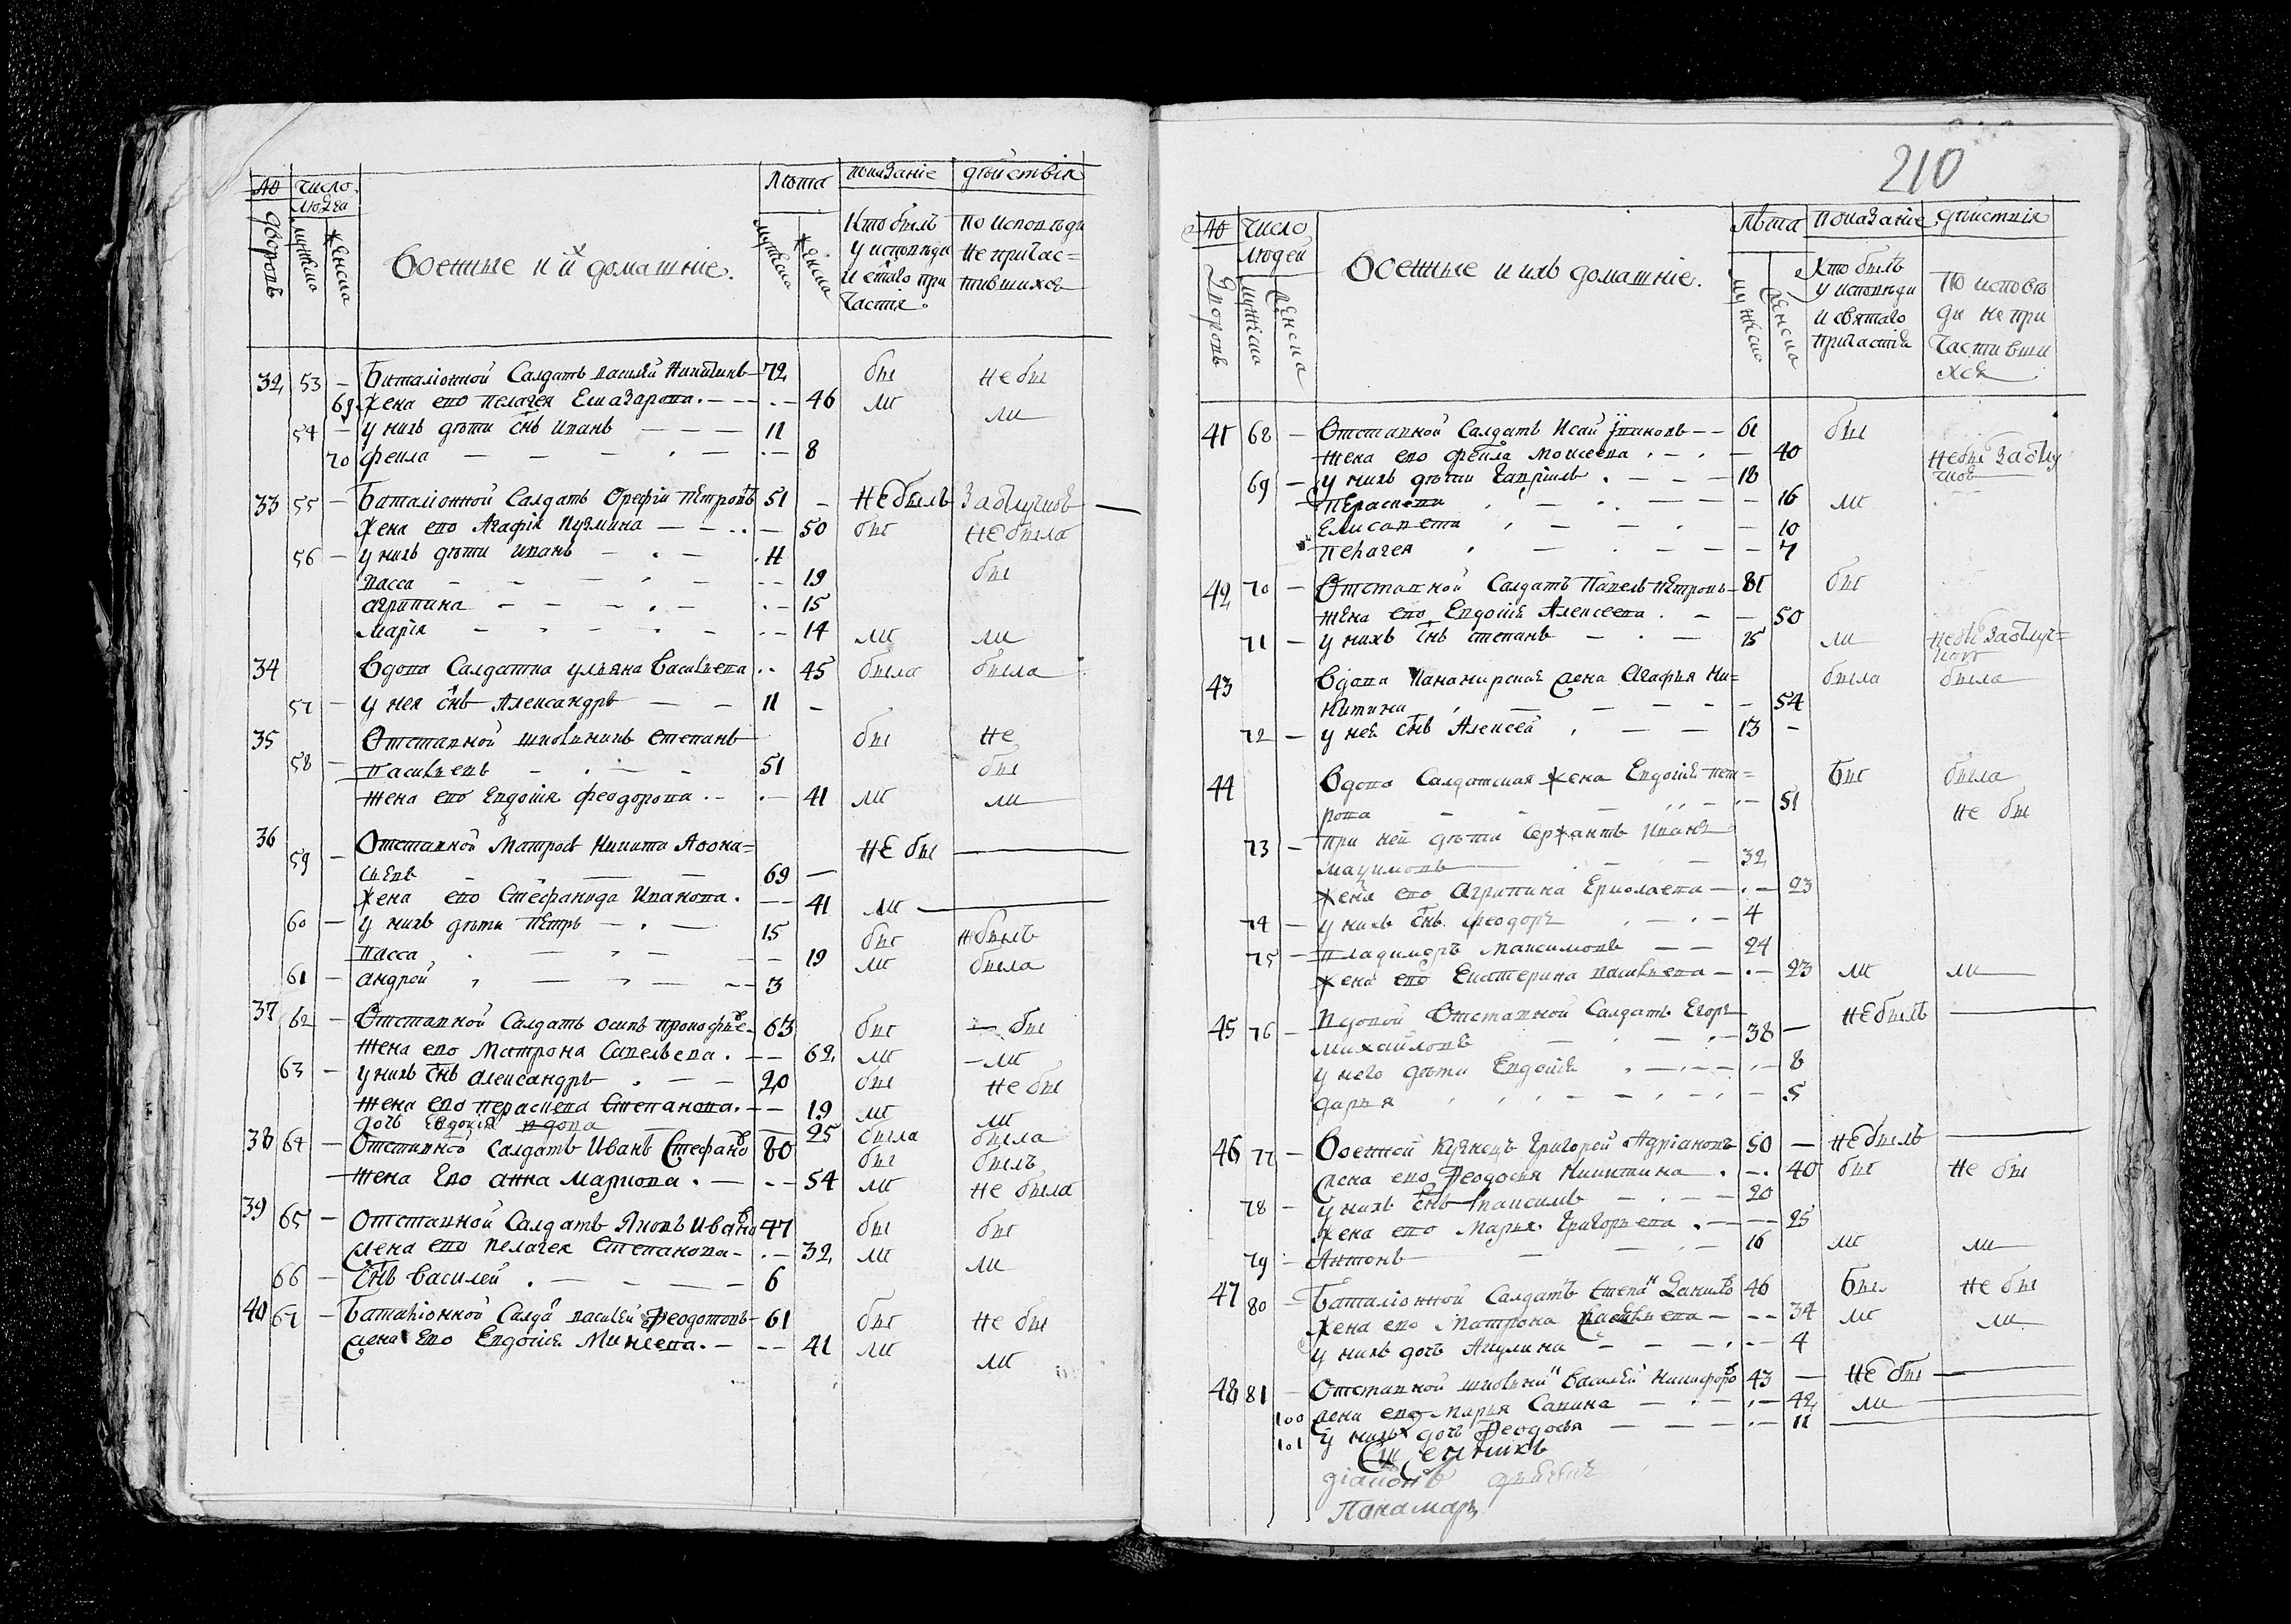 № дворовъ
Число людей
мужеска
женска
Военные и иˣ домашнїе.
Лѣта
мужеска
женска
показанїе
дѣйствїя
Кто былъ
у исповѣди
и стаго при
частїя
по исповѣди
не причас=
тившихся
32 53 — Баталїонной Салдатъ василей Никитинъ — 72 бы не бы
69 Жена его пелагея Елиазарова. — — 46 ли ли
54 — у нихъ дѣти снъ иванъ — — — 11
70 фекла — — — — 8
33 55 — Баталїонной Салдатъ Орефїй петровъ 51 — не былъ За отлучкою —
Жена его Агафїя кузмина — — 50 бы не была
56 — у нихъ дѣти иванъ — — 11
васса — — — — 19 бы
агрипина — — — — 15
Марїя — — — — 14 ли ли
34 Вдова Салдатка ульяна Васильева 45 была была
57 — у нея снъ Александръ — — 11 —
35 Отставной шковникъ степанъ бы не
58 — васильевъ — — — 51 бы
жена его Евдокїя феодорова — — 41 ли ли
36 Отставной Матросъ Никита Аѳона=
59 — сьевъ — — — 69 — не бы —
Жена его Стефанида Иванова. — — 41 ли —
60 — у нихъ дѣти петръ — — 15 бы не былъ
васса — — — — 19 ли была
61 — андрей — — — — 3
37 62 — Отставной Салдатъ осипъ прокофьеᵛ 63 бы — бы
жена его Матрона Савельева. — — 62 ли — ли
63 — у нихъ снъ александръ — — 20 бы не бы
жена его пераскева Степанова. — — 19 ли ли
дочь Евдокїя вдова — — 25 была была
38 64 — Отставной салдатъ Иванъ Стефановъ 80 бы былъ
— жена Его анна Маркова. — — 54 ли не была
39 65 — Отставной Салдатъ Яковъ Иванов 47 бы бы
жена его пелагея Степанова — — 32 ли ли
66 — снъ василей — — — 6
40 67 — Баталїонной Салда василей Феодотовъ — 61 бы не бы
жена Его Евдокїя Минеева. — — 41 ли ли
210
№ дворовъ
Число
людей
мужеска
женска
Военные и ихъ домашнїе.
лѣта
мужеска
женска
показанїе
дѣйствїя
Кто былъ
у исповѣди
и святаго
причастїя
по исповѣ
ди не при
частивши
хся
41 68 — Отставной Салдатъ Исай Ивановъ — — 61 бы
жена его фекла Моисеева — — 40 не бы За отлу
69 — у нихъ дѣти Гаврїилъ — — — 18 чкою
Пераскева — — — 16 ли
Елисавета — — — 10
Пелагея — — — 7
42 70 — Отставной Салдатъ Павелъ петровъ — 81 бы
жена его Евдокїя Алексеева — — 50
71 — у нихъ снъ степанъ — — 15 ли не бы За отлуч=
кою
43 Вдова Панамарская жена Агафья Ни= была была
китина — — — 54
72 — у нея снъ Алексей — — 13 —
44 Вдова Салдатская жена Евдокїя пет= бы была
рова — — — 51 не бы
73 — при ней дѣти Сержантъ Иванъ
Максимовъ — — — 32
жена его Агрипина Ермолаева — — 23
74 — у нихъ снъ феодоръ — — 4
75 — владимеръ Максимовъ — — 24
жена его Екатерина васильева — — 23 ли ли
45 76 — Вдовой Отставной Салдатъ Егоръ не былъ —
Михайловъ — — — 38 —
у него дѣти Евдокїя — — — 8
дарья — — — 5
46 77 — Военной Григорей Адрїановъ 50 — не былъ —
жена его Феодосья Никитина — — 40 бы не бы
78 — у нихъ снъ Максимъ — — 20
жена его Марья Григорьева — — 25
79 — Антонъ — — — 16 ли ли
47 80 — Баталїонной Салдатъ Степа Данило 46 бы не бы
Жена его Матрона васильева — — 34 ли ли
у нихъ дочь Акулина — — — 4
48 81 — Отставной шковни Василей Никифоро 43 — не бы —
100 жена его Марья Савина — — 42 ли —
101 у нихъ дочь Феодосья — — — 11 —
Сщенникъ
дїаконъ
Панамарь